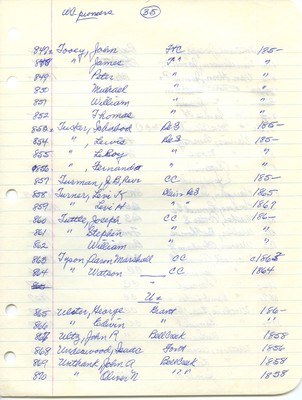 WC pioneers (35)
847 Tooey, John FtC 185-
848 " , James " "
849 " Peter " "
850 " Michael " "
851 " William " "
852 " Thomas " "
853 Tucker, Ichabod DeS 185-
854 " , Lewis DeS 185-
855 " LeRoy " "
856 " , Fernando " "
857 Turman, J.B. Rev. CC 185-
858 Turner, Levi K DeS 1865
859 " Levi H " 1867
860 Tuttle, Joseph CC 186-
861 " Stephen " "
862 William " "
863 Tyson, Marshall CC c1863
864 " Watson CC 1864
U
865 Ulster, George Grant 186-
866 " Edwin " "
867 Ultz, John R BellCreek 1858
868 Underwood, Isaac Font 1856
869 Unthank, John A BellCreek 1858
870 " Oliver N " " " 1858